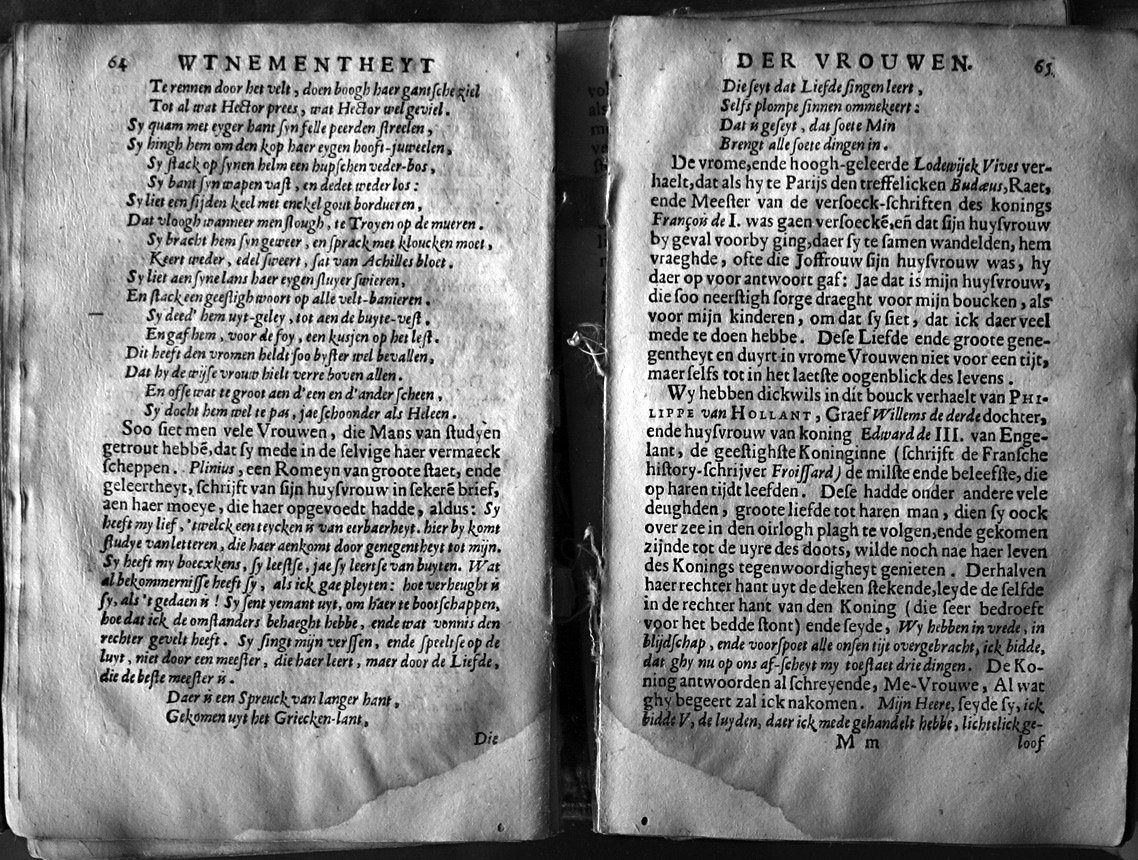 64 WTNEMENTHEYT
Te rennen door het velt, doen boogh haer gantsche ziel
Tot al wat Hector prees, wat Hector wel geviel.
Sy quam met eyger hant syn felle peerden streelen,
Sy hingh hem om den kop haer eygen hooft-juweelen,
Sy stack op synen helm een hupschen veder-bos,
Sy bant syn wapen vast, en dedet weder los:
Sy liet een sijden keel met enckel gout bordueren,
Dat vloogh wanneer men slough, te Troyen op de mueren.
Sy bracht hem syn geweer, en sprack met kloucken moet,
Keert weder, edel sweert, sat van Achilles bloet.
Sy liet aen syne lans haer eygen sluyer swieren,
En stack een geestigh woort op alle velt-banieren.
Sy deed' hem uyt-geley, tot aen de buyte-vest,
En gaf hem, voor de foy, een kusjen op het lest.
Dit heeft den vromen heldt soo byster wel bevallen,
Dat hy de wijse vrouw hielt verre boven allen.
En offe wat te groot aen d'een en d'ander scheen,
Sy docht hem wel te pas, jae schoonder als Heleen.
Soo siet men vele Vrouwen, die Mans van studyen
getrout hebbē, dat sy mede in de selvige haer vermaeck
scheppen. Plinius, een Romeyn van groote staet, ende
geleertheyt, schrijft van sijn huysvrouw in sekerē brief,
aen haer moeye, die haer opgevoedt hadde, aldus: Sy
heeft my lief, 'twelck een teycken is van eerbaerheyt. hier by komt
studye van letteren, die haer aenkomt door genegentheyt tot mijn.
Sy heeft my boecxkens, sy leestse, jae sy leertse van buyten. Wat
al bekommernisse heeft sy, als ick gae pleyten: hoe verheught is
sy, als 't gedaen is! Sy sent yemant uyt, om haer te bootschappen,
hoe dat ick de omstanders behaeght hebbe, ende wat vonnis den
rechter gevelt heeft. Sy singt mijn verssen, ende speeltse op de
luyt, niet door een meester, die haer leert, maer door de Liefde,
die de beste meester is.
Daer is een Spreuck van langer hant,
Gekomen uyt het Griecken-lant,
Die
DER VROUWEN. 65
Die seyt dat Liefde singen leert,
Selfs plompe sinnen ommekeert:
Dat is geseyt, dat soete Min
Brengt alle soete dingen in.
De vrome, ende hoogh-geleerde Lodewijck Vives ver-
haelt, dat als hy te Parijs den treffelicken Budæus, Raet,
ende Meester van de versoeck-schriften des konings
François de I. was gaen versoeckē, eñ dat sijn huysvrouw
by geval voorby ging, daer sy te samen wandelden, hem
vraeghde, ofte die Joffrouw sijn huysvrouw was, hy
daer op voor antwoort gaf: Jae dat is mijn huysvrouw,
die soo neerstigh sorge draeght voor mijn boucken, als
voor mijn kinderen, om dat sy siet, dat ick daer veel
mede te doen hebbe. Dese Liefde ende groote gene-
gentheyt en duyrt in vrome Vrouwen niet voor een tijt,
maer selfs tot in het laetste oogenblick des levens.
Wy hebben dickwils in dit bouck verhaelt van PHI-
LIPPE van HOLLANT, Graef Willems de derde dochter,
ende huysvrouw van koning Edward de III. van Enge-
lant, de geestighste Koninginne (schrijft de Fransche
history-schrijver Froissard) de milste ende beleefste, die
op haren tijdt leefden. Dese hadde onder andere vele
deughden, groote liefde tot haren man, dien sy oock
over zee in den oirlogh plagh te volgen, ende gekomen
zijnde tot de uyre des doots, wilde noch nae haer leven
des Konings tegenwoordigheyt genieten. Derhalven
haer rechter hant uyt de deken stekende, leyde se selfde
in de rechter hant van den Koning (die seer bedroeft
voor het bedde stont) ende seyde, Wy hebben in vrede, in
blijdschap, ende voorspoet alle onsen tijt overgebracht, ick bidde,
dat ghy nu op ons af-scheyt my toestaet drie dingen. De Ko-
ning antwoorden al schreyende, Me-Vrouwe, Al wat
ghy begeert zal ick nakomen. Mijn Heere, seyde sy, ick
bidde V, de luyden, daer ick mede gehandelt hebbe, lichtelick ge-
M m loof